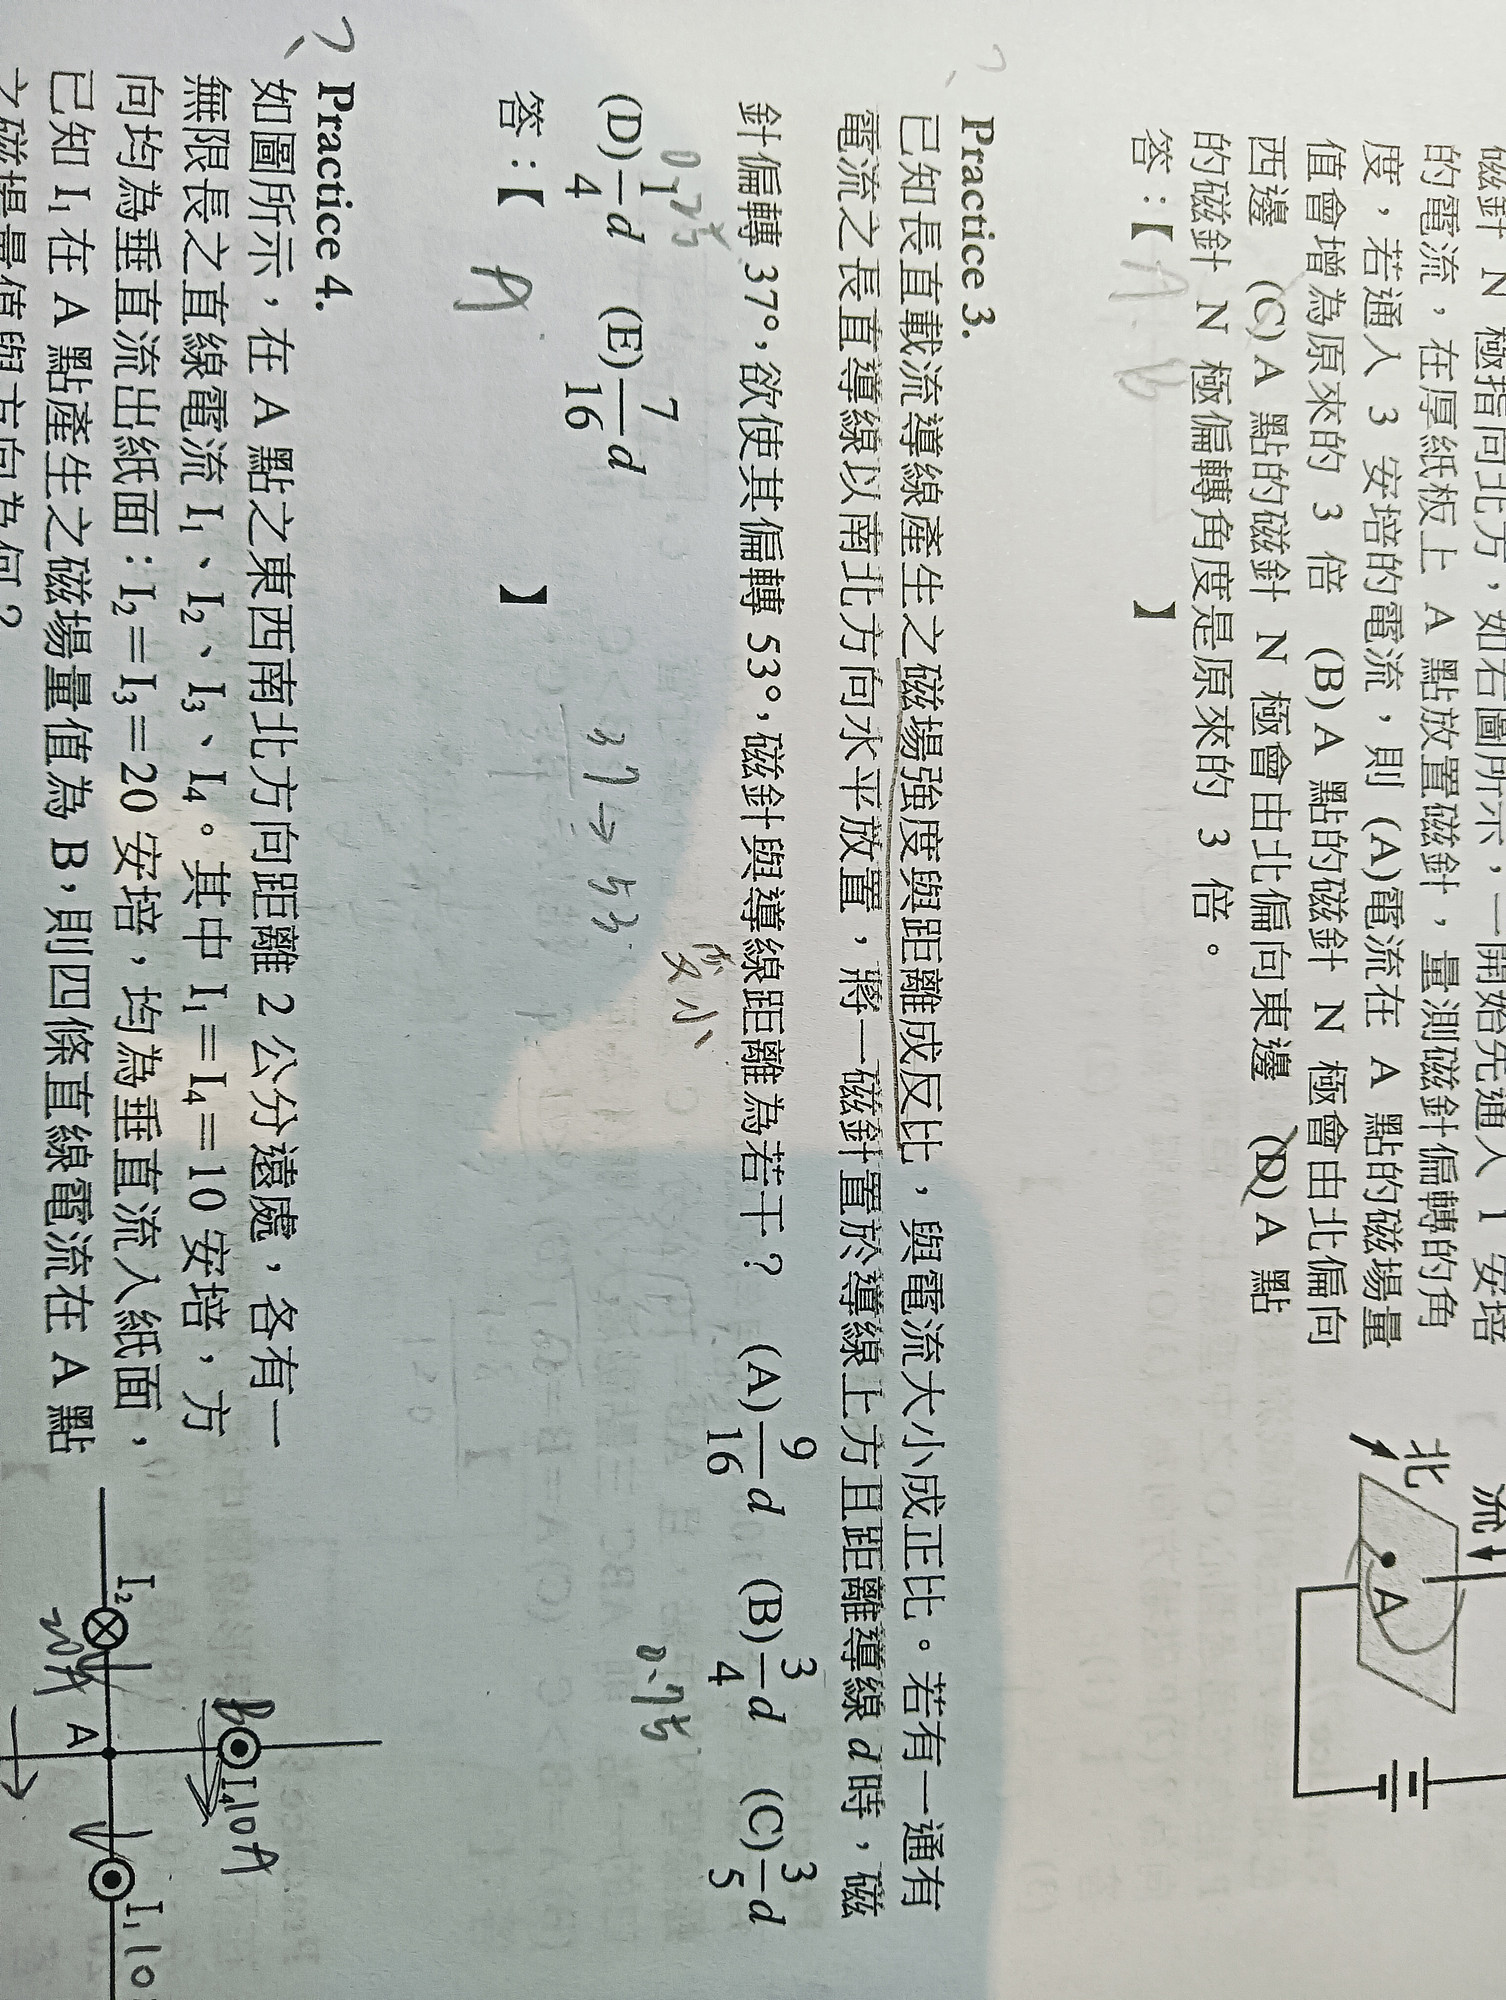 磁針 N 極指向北方,如右圖所示,一開始先通入 1 安培
的電流,在厚紙板上 A 點放置磁針,量測磁針偏轉的角
度,若通入 3 安培的電流,則 (A)電流在 A 點的磁場量
值會增為原來的 3 倍 (B)A 點的磁針 N 極會由北偏向
西邊 (C)A 點的磁針 N 極會由北偏向東邊 (D)A 點
的磁針 N 極偏轉角度是原來的 3 倍。
答:【 A B 】
流
北
A
Practice 3.
已知長直載流導線產生之磁場強度與距離成反比,與電流大小成正比。若有一通有
電流之長直導線以南北方向水平放置,將一磁針置於導線上方且距離導線 d 時,磁
針偏轉 37°,欲使其偏轉 53°,磁針與導線距離為若干? (A) 9/16 d (B) 3/4 d (C) 3/5 d
變小
(D) 1/4 d (E) 7/16 d
37→53
0.75
答:【 A 】
Practice 4.
如圖所示,在 A 點之東西南北方向距離 2 公分遠處,各有一
無限長之直線電流 I₁、I₂、I₃、I₄。其中 I₁=I₄=10 安培,方
向均為垂直流出紙面:I₂=I₃=20 安培,均為垂直流入紙面,
已知 I₁ 在 A 點產生之磁場量值為 B,則四條直線電流在 A 點
之磁場量值與方向為何?
B
I₄ 10A
I₂
20A
A
I₁ 10